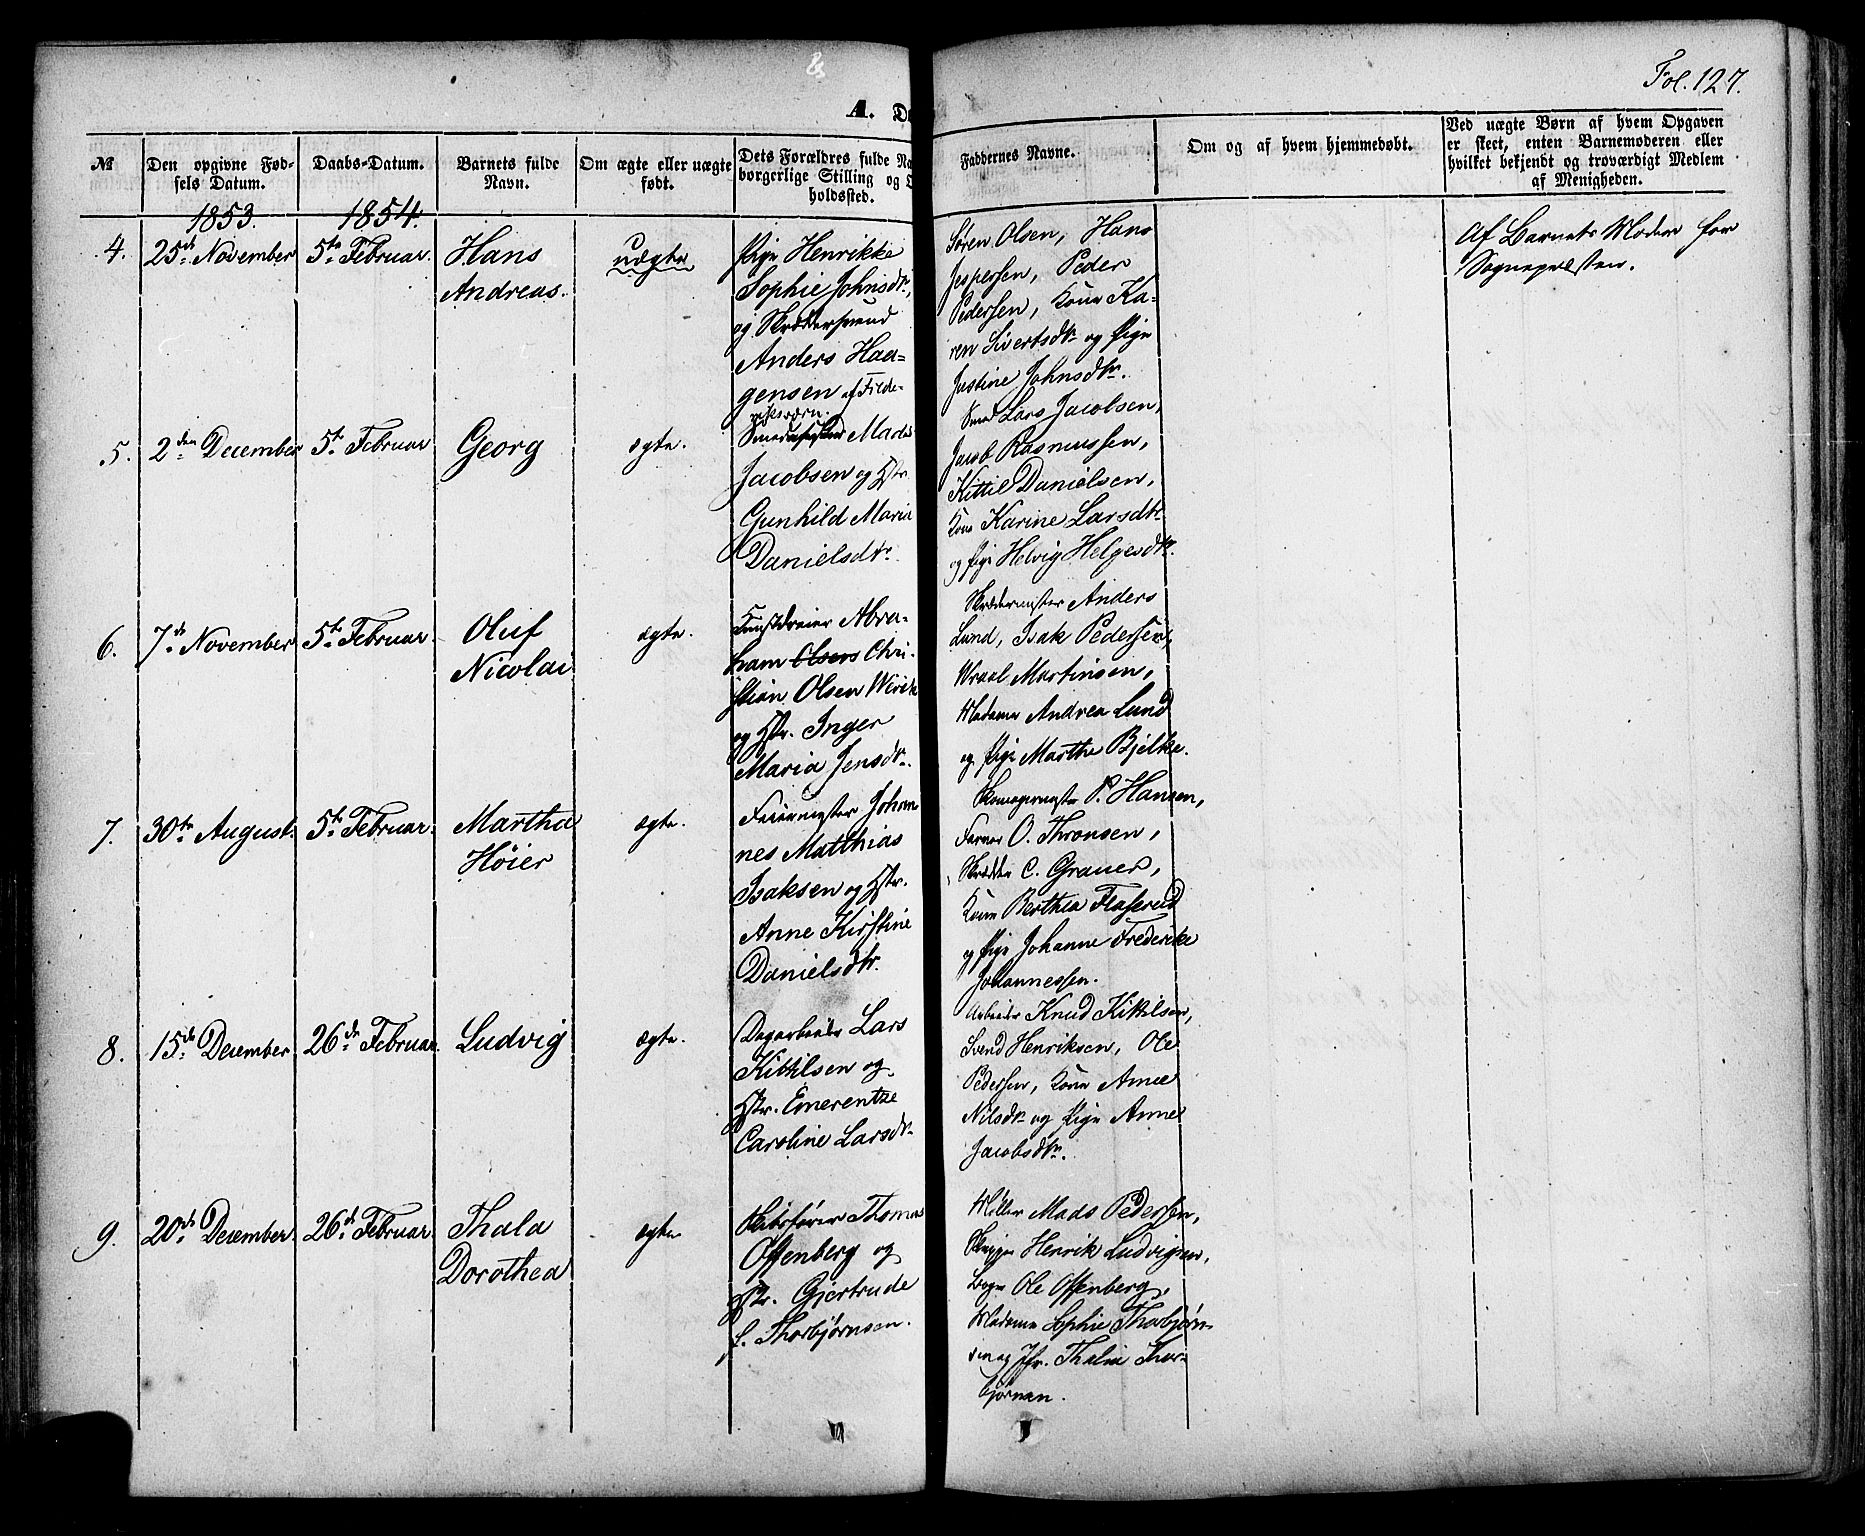 Fol. 127.
A. Dø
№
Den opgivne Fød-
sels Datum.
Daabs-Datum.
Barnets fulde
Navn.
Om ægte eller uægte
født.
Dets Forældres fulde Na
borgerlige Stilling og O
holdssted.
Faddernes Navne.
Om og af hvem hjemmedøbt.
Ved uægte Børn af hvem Opgaven
er skeet, enten Barnemoderen eller
hvilket bekjendt og troværdigt Medlem
af Menigheden.
1853.
1854.
4.
25de November
5te Februar
Hans
Andreas.
uægte
Pige Henrikke
Sophie Johnsdtr,
og Skræddersvend
Anders Haa=
gensen af Frede=
riksværn.
Søren Olsen, Hans
Jespersen, Peder
Pedersen, Kone Ka-
ren Sivertsdtr og Pige
Justine Johnsdtr.
Af Barnets Moder for
Sognepræsten.
5.
2den December
5te Februar
Georg
ægte.
Mads
Jacobsen og Hstr.
Gunhild Maria
Danielsdtr.
Smed Lars Jacobsen,
Jacob Rasmussen,
Kittil Danielsen,
Kone Karine Larsdtr
og Pige Helvig Helgesdtr.
6.
7de November
5te Februar
Oluf
Nicolai
ægte.
Kunstdreier Abra-
ham Olsens Chri-
stian Olsen
og Hstr. Inger
Maria Jensdtr.
Skræddermester Anders
Lund, Isak Pedersen,
Wraal Martinsen,
Madame Andrea Lund
og Pige Marthe Bjelke.
7.
30te August.
5te Februar
Martha
Høier
ægte.
Feiermester Johan
nes Matthias
Isaksen og Hstr.
Anne Kirstine
Danielsdtr.
Skomagermester P. Hansen,
Farver O. Thronsen,
Skrædder C. Grauer,
Kone Berthea Flaserud
og Pige Johanne Frederike
Johannessen.
8.
15de December
26de Februar
Ludvig
ægte.
Dagarbeider Lars
Kittilsen og
Hstr. Emerentze
Caroline Larsdtr
Arbeider Knud Kittilsen,
Svend Henriksen, Ole
Pedersen, Kone Anne
Nilsdtr og Pige Anne
Jacobsdtr.
9.
20de December
26de Februar
Thala
Dorothea
ægte
Skibsfører Thomas
Offenberg og
Hstr. Gjertrude
f. Thorbjørnsen.
Møller Mads Pedersen,
Skipper Henrik Ludvigsen,
Ole Offenberg,
Madame Sophie Thorbjørn-
sen og Jfr. Thalia Thor-
bjørnsen.